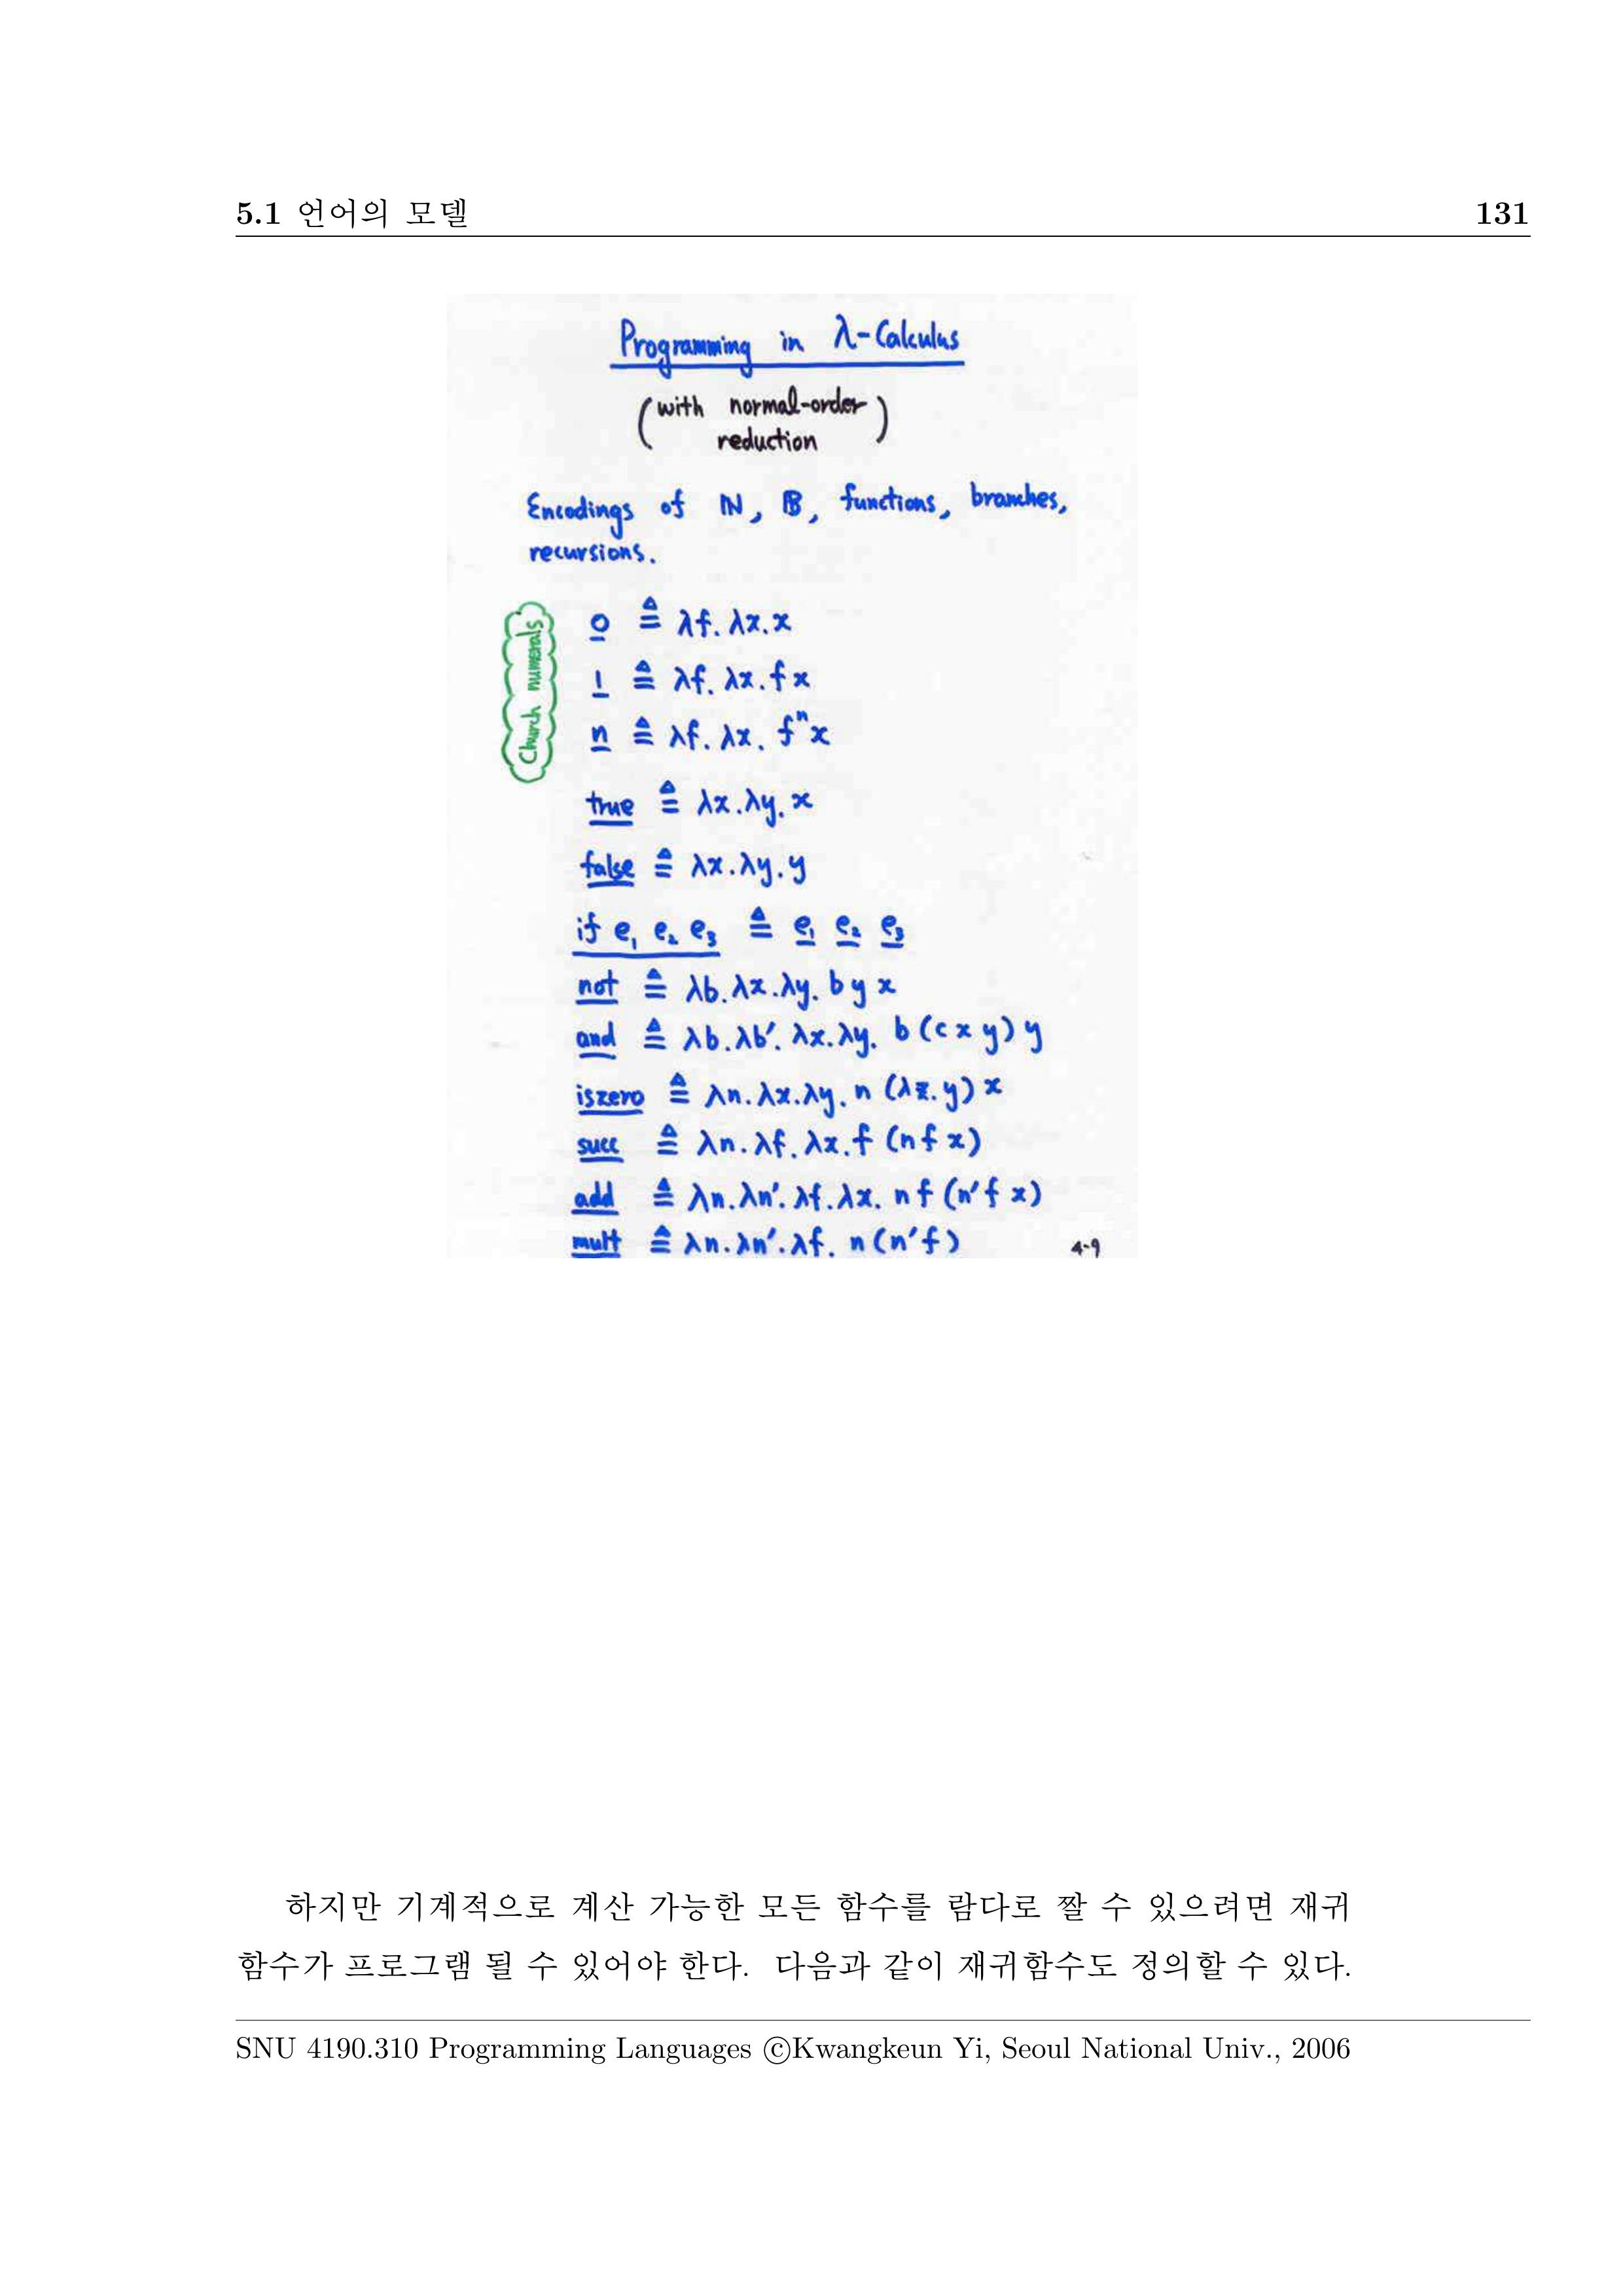 5.1 언어의 모델 131
Programming in λ-Calculus
(with normal-order
reduction)
Encodings of ℕ, 𝔹, functions, branches,
recursions.
Church numerals
0 ≜ λf. λx. x
1 ≜ λf. λx. f x
n ≜ λf. λx. fⁿx
true ≜ λx.λy. x
false ≜ λx.λy. y
if e₁ e₂ e₃ ≜ e₁ e₂ e₃
not ≜ λb.λx.λy. b y x
and ≜ λb.λb′. λx.λy. b (c x y) y
iszero ≜ λn.λx.λy. n (λz. y) x
succ ≜ λn. λf. λx. f (n f x)
add ≜ λn. λn′. λf. λx. n f (n′ f x)
mult ≜ λn. λn′. λf. n (n′ f)
4-9
하지만 기계적으로 계산 가능한 모든 함수를 람다로 짤 수 있으려면 재귀
함수가 프로그램 될 수 있어야 한다. 다음과 같이 재귀함수도 정의할 수 있다.
SNU 4190.310 Programming Languages ©Kwangkeun Yi, Seoul National Univ., 2006